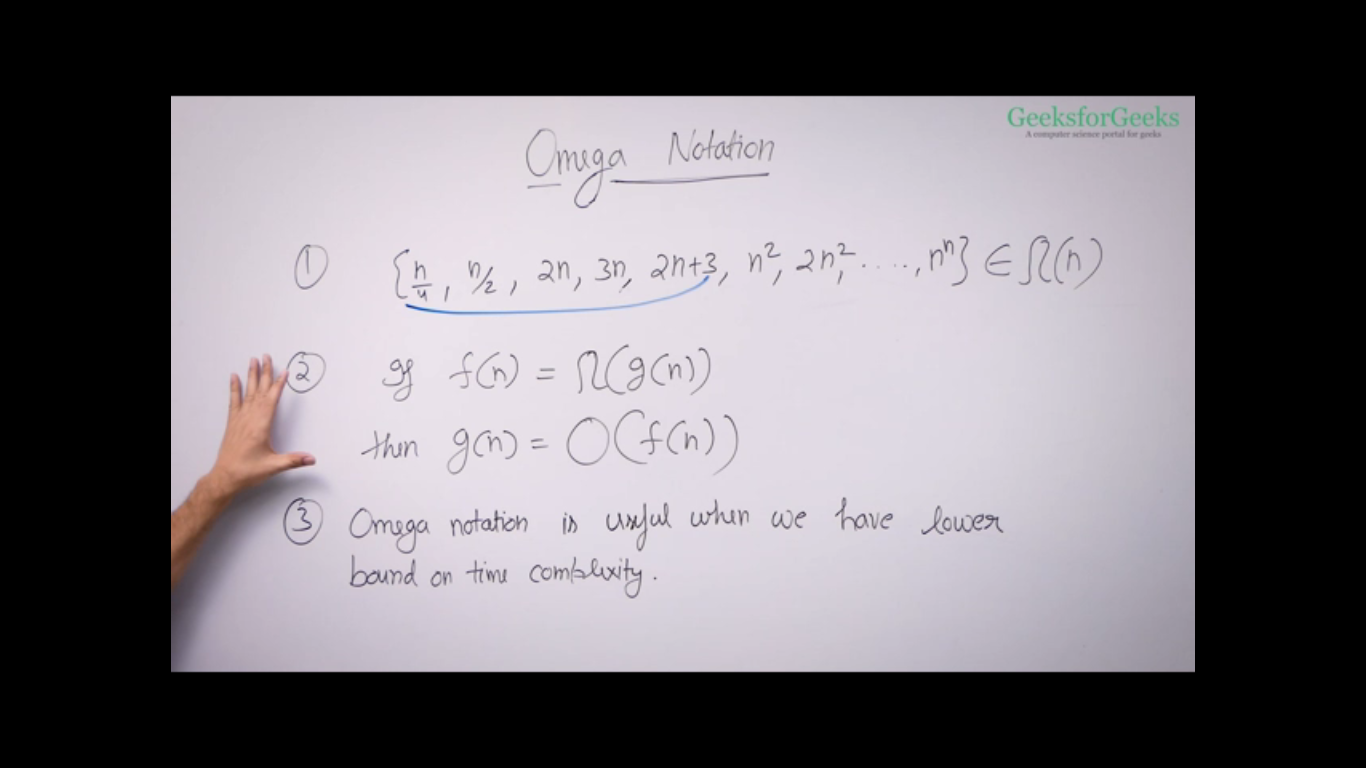 GeeksforGeeks
A computer science portal for geeks
Omega Notation
① {n/4, n/2, 2n, 3n, 2n+3, n², 2n², ...., nⁿ} ∈ Ω(n)
② If f(n) = Ω(g(n))
then g(n) = O(f(n))
③ Omega notation is useful when we have lower
bound on time complexity.